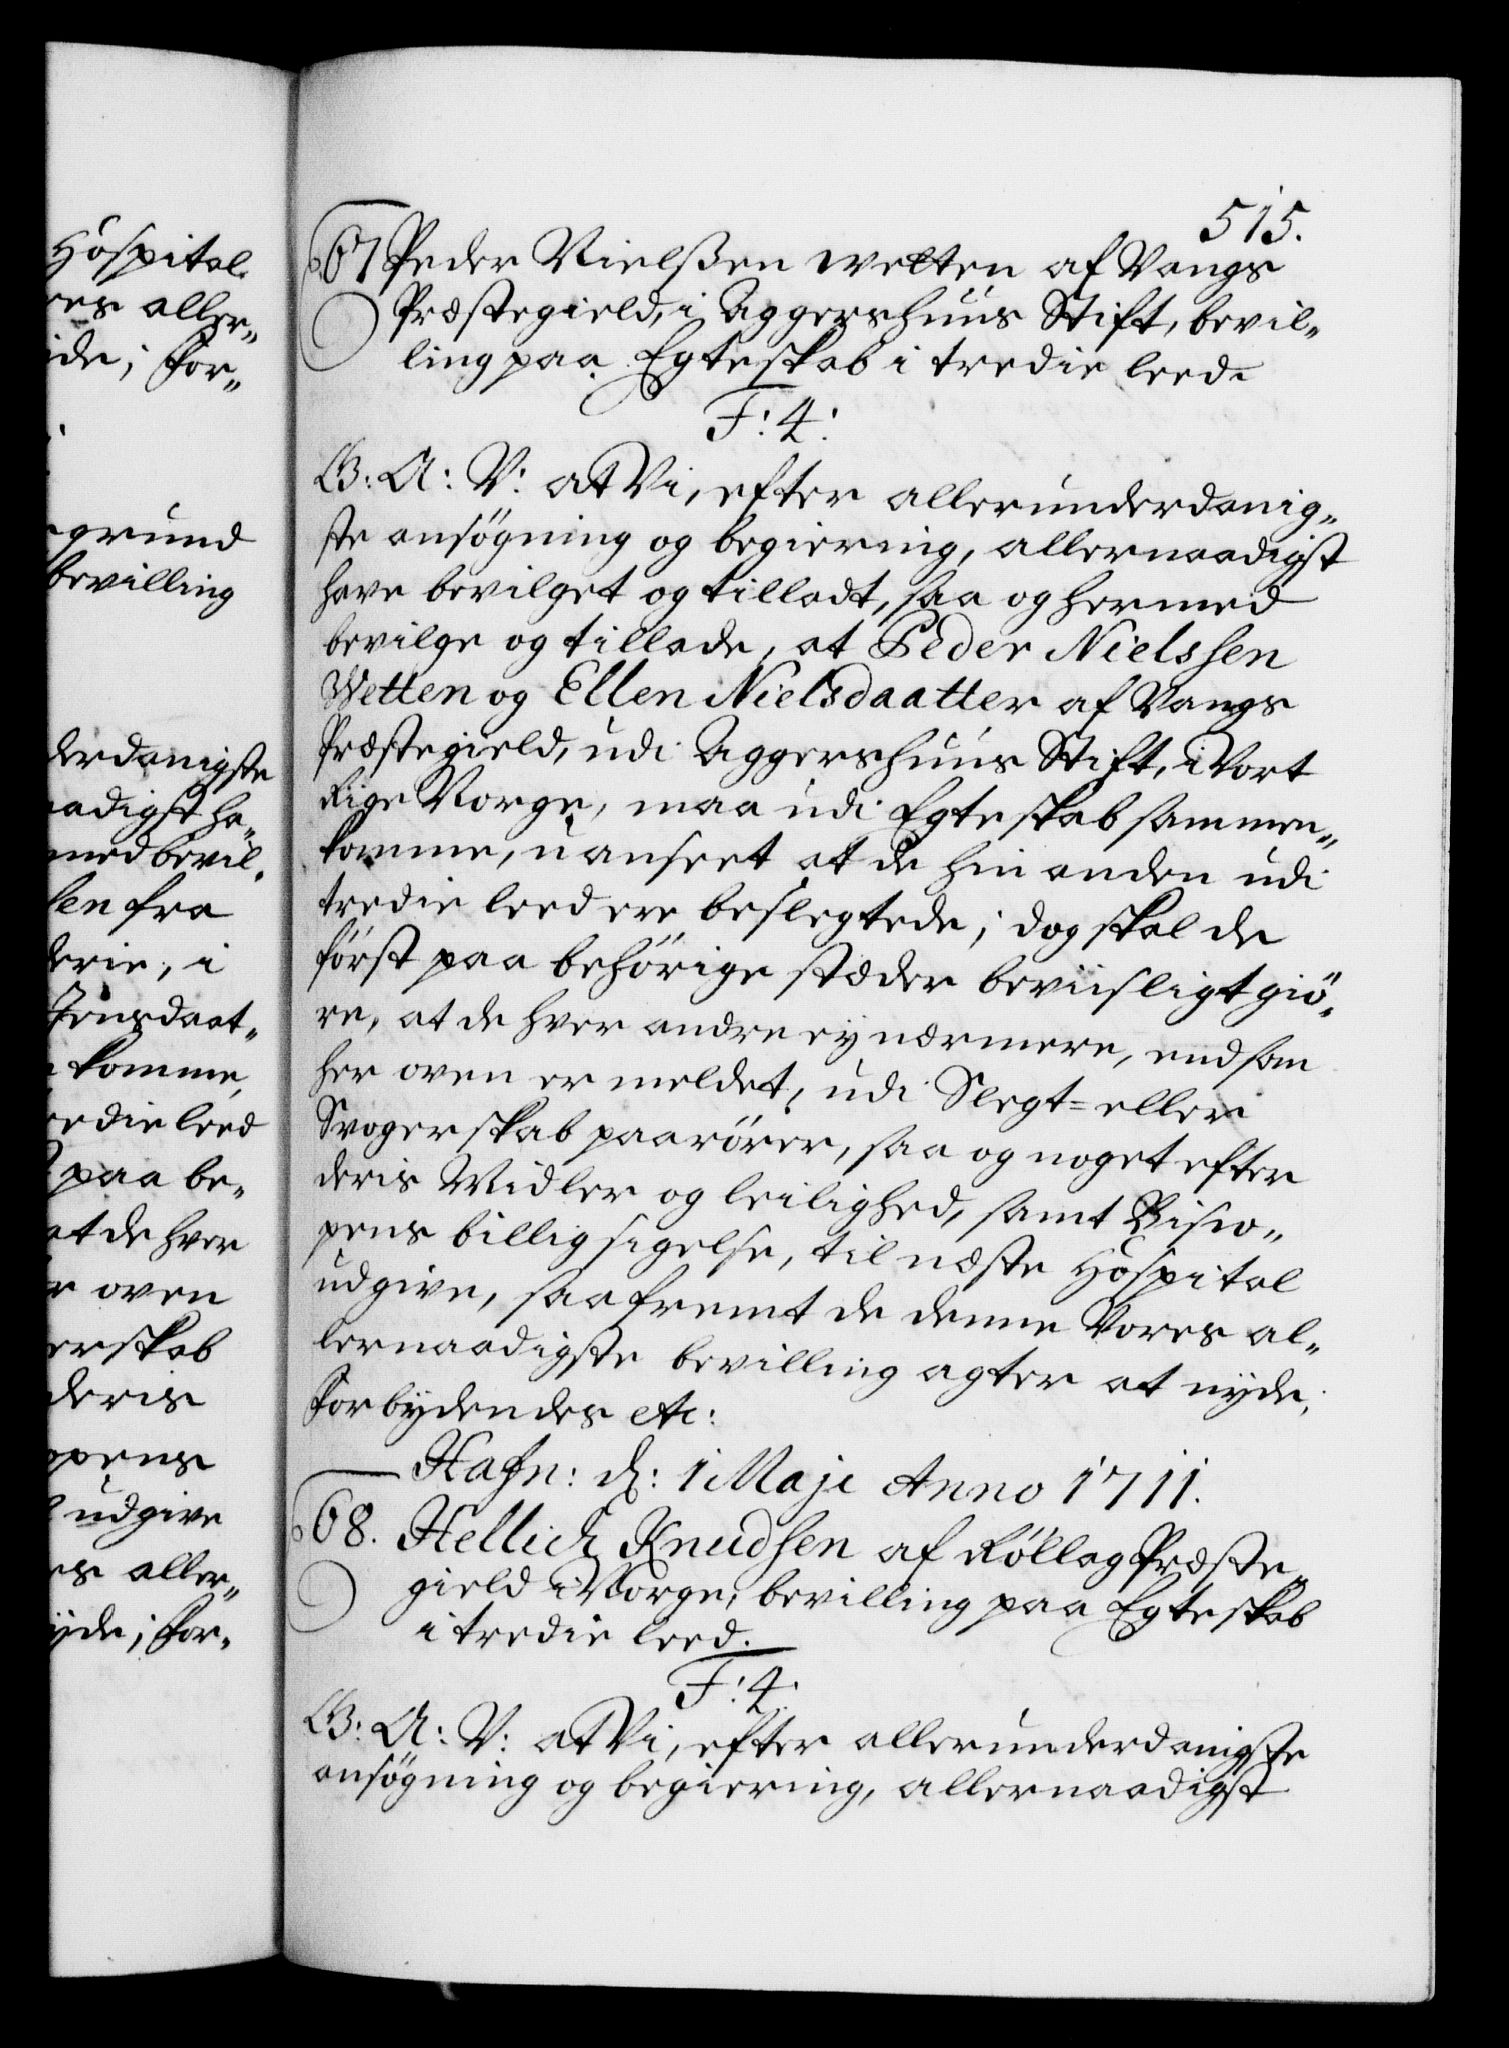 Hospital
res aller„
ide; For„
grund
bevilling
derdanigste
aadigst ha„
med bevil„
sen fra
derie, i
Jensdaat„
komme,
redie leed
paa be„
at de hver
r oven
erskab
deris
opens
udgive
es aller„
yde; For„
515.
67 Peder Nielssen Wetten af Vangs
Præstegield, i Aggershuus Stift, bevil„
ling paa Egteskab i tredie leed.
F: 4:
G: A: V: at Vi, efter allerunderdanig„
ste ansøgning og begiering, allernaadigst
have bevilget og tilladt, saa og hermed
bevilge og tillade, at Peder Nielssen
Wetten og Ellen Nielsdaatter af Vangs
Præstegield, udi Aggershuus Stift, i Vort
Rige Norge, maa udi Egteskab sammen„
komme, uanseet at de hin anden udi
tredie leed ere beslegtede; dog skal de
först paa behörige stæder beviisligt giö„
re, at de hver andre ey nærmere, end som
her oven er meldet, udi Slegt= eller
Svogerskab paarörer, saa og noget efter
deris Midler og leilighed, samt Bisco„
pens billig sigelse, til næste Hospital
udgive, saafremt de denne Vores al„
lernaadigste bevilling agter at nyde;
Forbydendes etc:
Hafn: d: 1 Maji Anno 1711.
68. Hellich Knudsen af Röllag Præste„
gield i Norge, bevilling paa Egteskab
i tredie leed.
F: 4:
G: A: V: at Vi, efter allerunderdanigste
ansøgning og begiering, allernaadigst